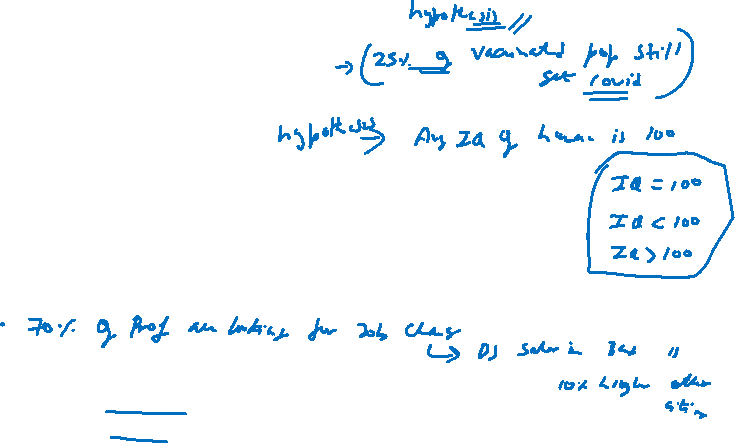 hypothesis
→ (25% of vaccinated pop still
get covid)
hypothesis → Avg IQ of human is 100
IQ = 100
IQ < 100
IQ > 100
70% of Prof are looking for Job change
↳ DS salar in is
10% higher other
cities